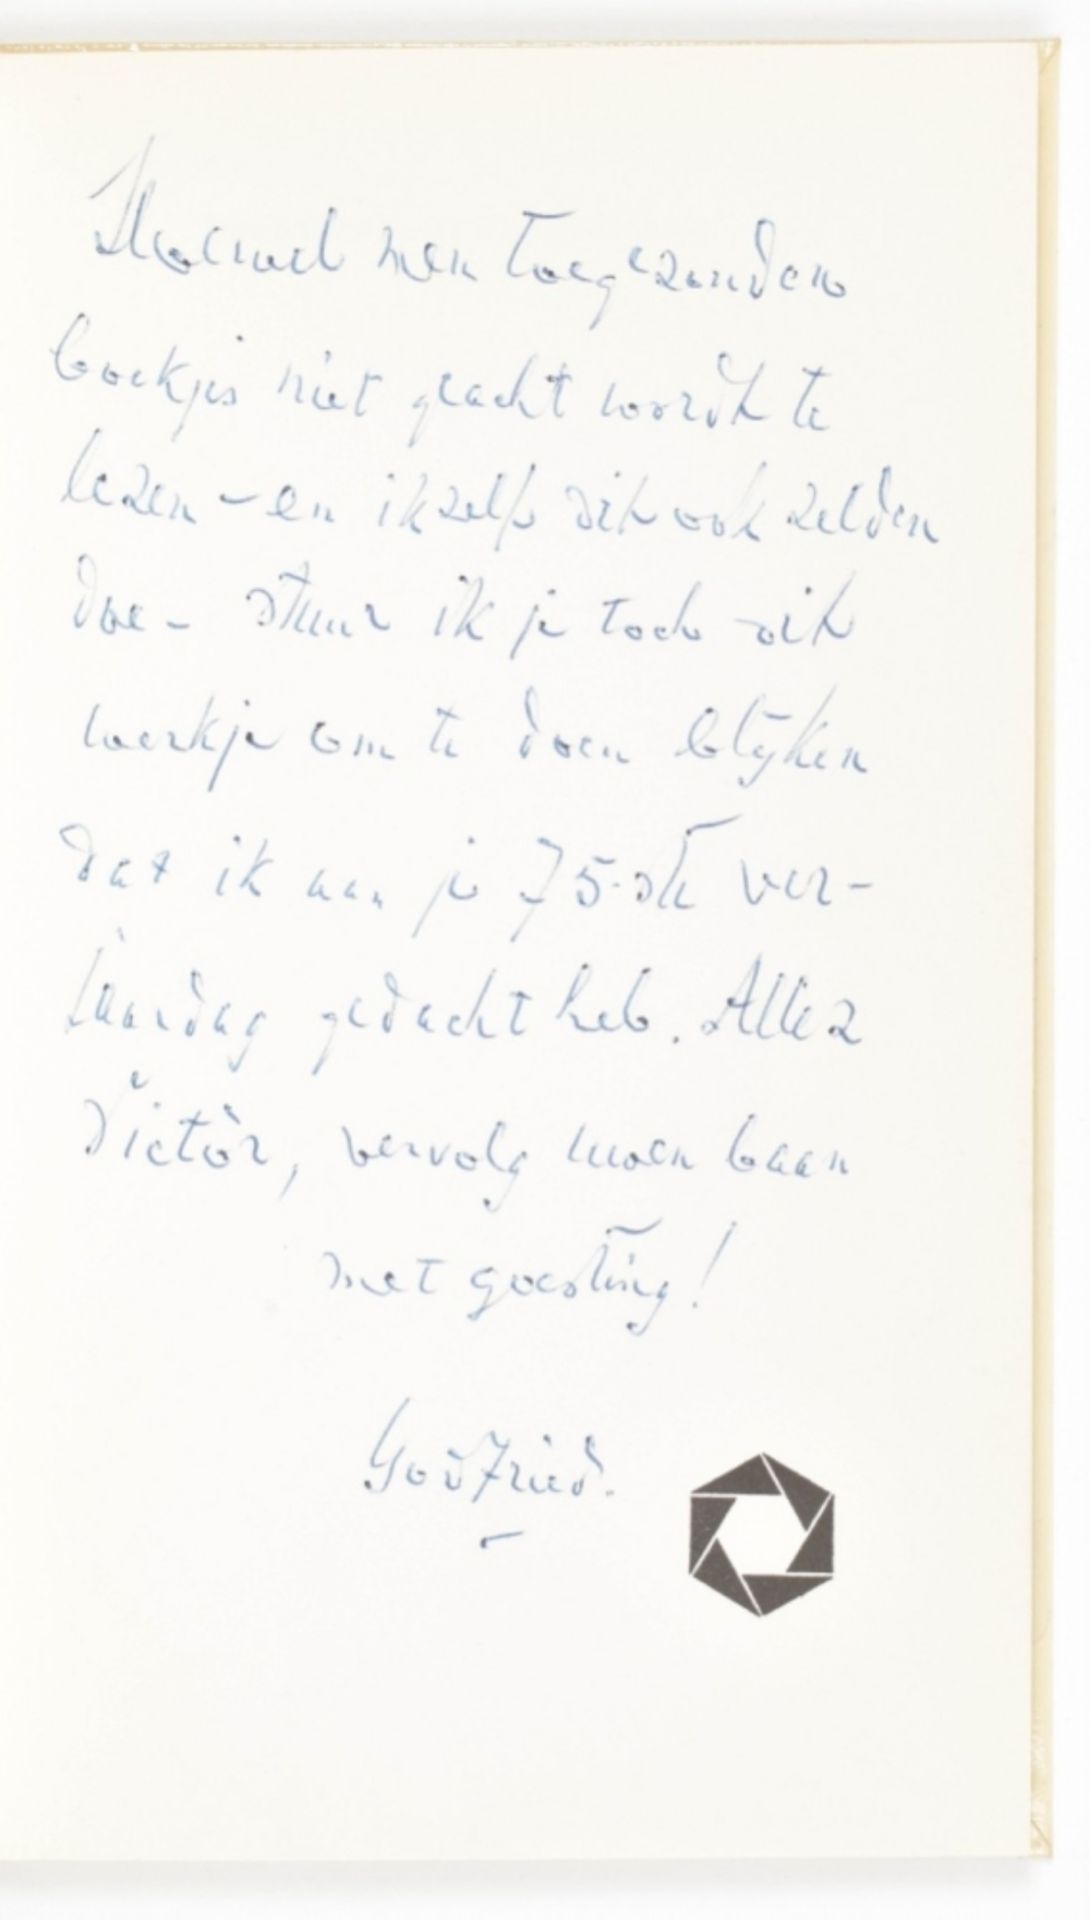 Hoewel men toegezonden
boekjes niet geacht wordt te
lezen – en ikzelf dit ook zelden
doe – stuur ik je toch dit
werkje om te doen blijken
dat ik aan je 75-ste ver-
jaardag gedacht heb. Allez
Victòr, vervolg uwen baan
met goesting!
Godfried.